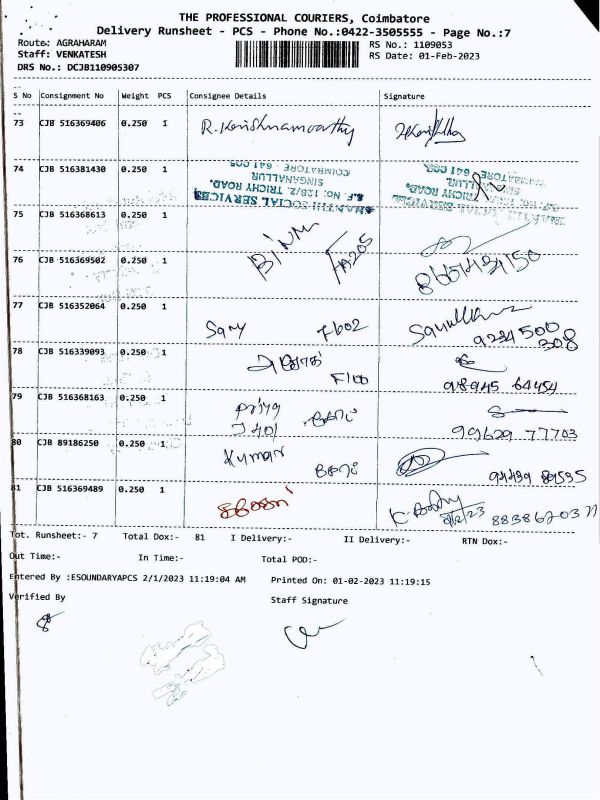 THE PROFESSIONAL COURIERS, Coimbatore
Delivery Runsheet - PCS - Phone No.:0422-3505555 - Page No.:7
Route: AGRAHARAM
RS No.: 1109053
Staff: VENKATESH
RS Date: 01-Feb-2023
DRS No.: DCJB110905307
S No Consignment No Weight PCS Consignee Details Signature
73 CJB 516369406 0.250 1 R. Krishnamoorthy
74 CJB 516381430 0.250 1
SHAKTHI SOCIAL SERVICES
S.F. No: 128/2, TRICHY ROAD,
SINGANALLUR
COIMBATORE - 641 005
75 CJB 516368613 0.250 1
76 CJB 516369502 0.250 1 BINU FA205
77 CJB 516352064 0.250 1 Sany Fb02
9234500
308
78 CJB 516339093 0.250 1
F100 98945 64454
79 CJB 516368163 0.250 1 Priya
J401 99629 77703
80 CJB 89186250 0.250 1 Kumar
81 CJB 516369489 0.250 1
Tot. Runsheet:- 7 Total Dox:- 81 I Delivery:- II Delivery:- RTN Dox:-
Out Time:- In Time:- Total POD:-
Entered By :ESOUNDARYAPCS 2/1/2023 11:19:04 AM Printed On: 01-02-2023 11:19:15
Verified By Staff Signature